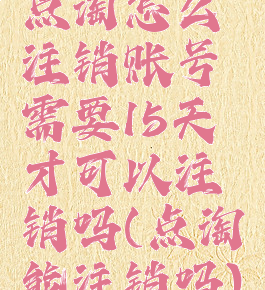 点淘怎么
注销账号
需要15天
才可以注
销吗(点淘
能注销吗)